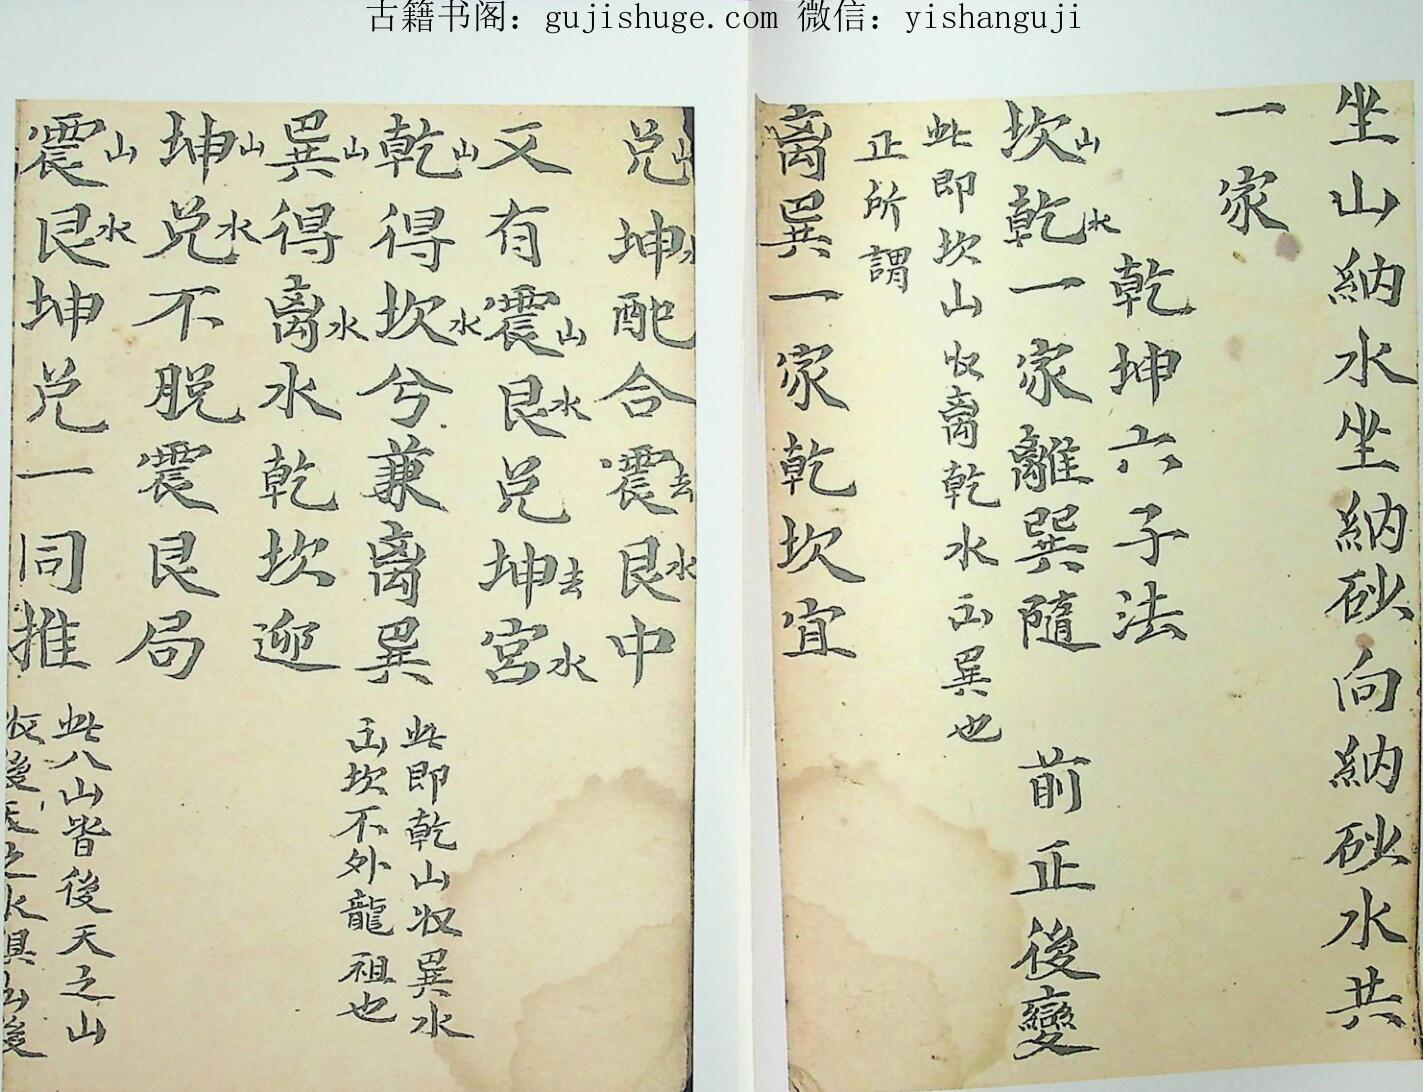 古籍书阁：gujishuge.com 微信：yishanguji
坐山納水坐納砂向納砂水共
一家
乾坤六子法
坎山乾水一家離巽隨 前正後變
此即坎山收离乾水出巽也
正所謂
离巽一家乾坎宜
兑山坤水配合震去艮水中
又有震山艮水兑坤去宮水
乾山得坎水兮兼离巽
此即乾山收巽水
出坎不外龍祖也
巽山得离水水乾坎迎
坤山兑水不脱震艮局
震山艮水坤兑一同推
此八山皆後天之山
收後天之水俱出後